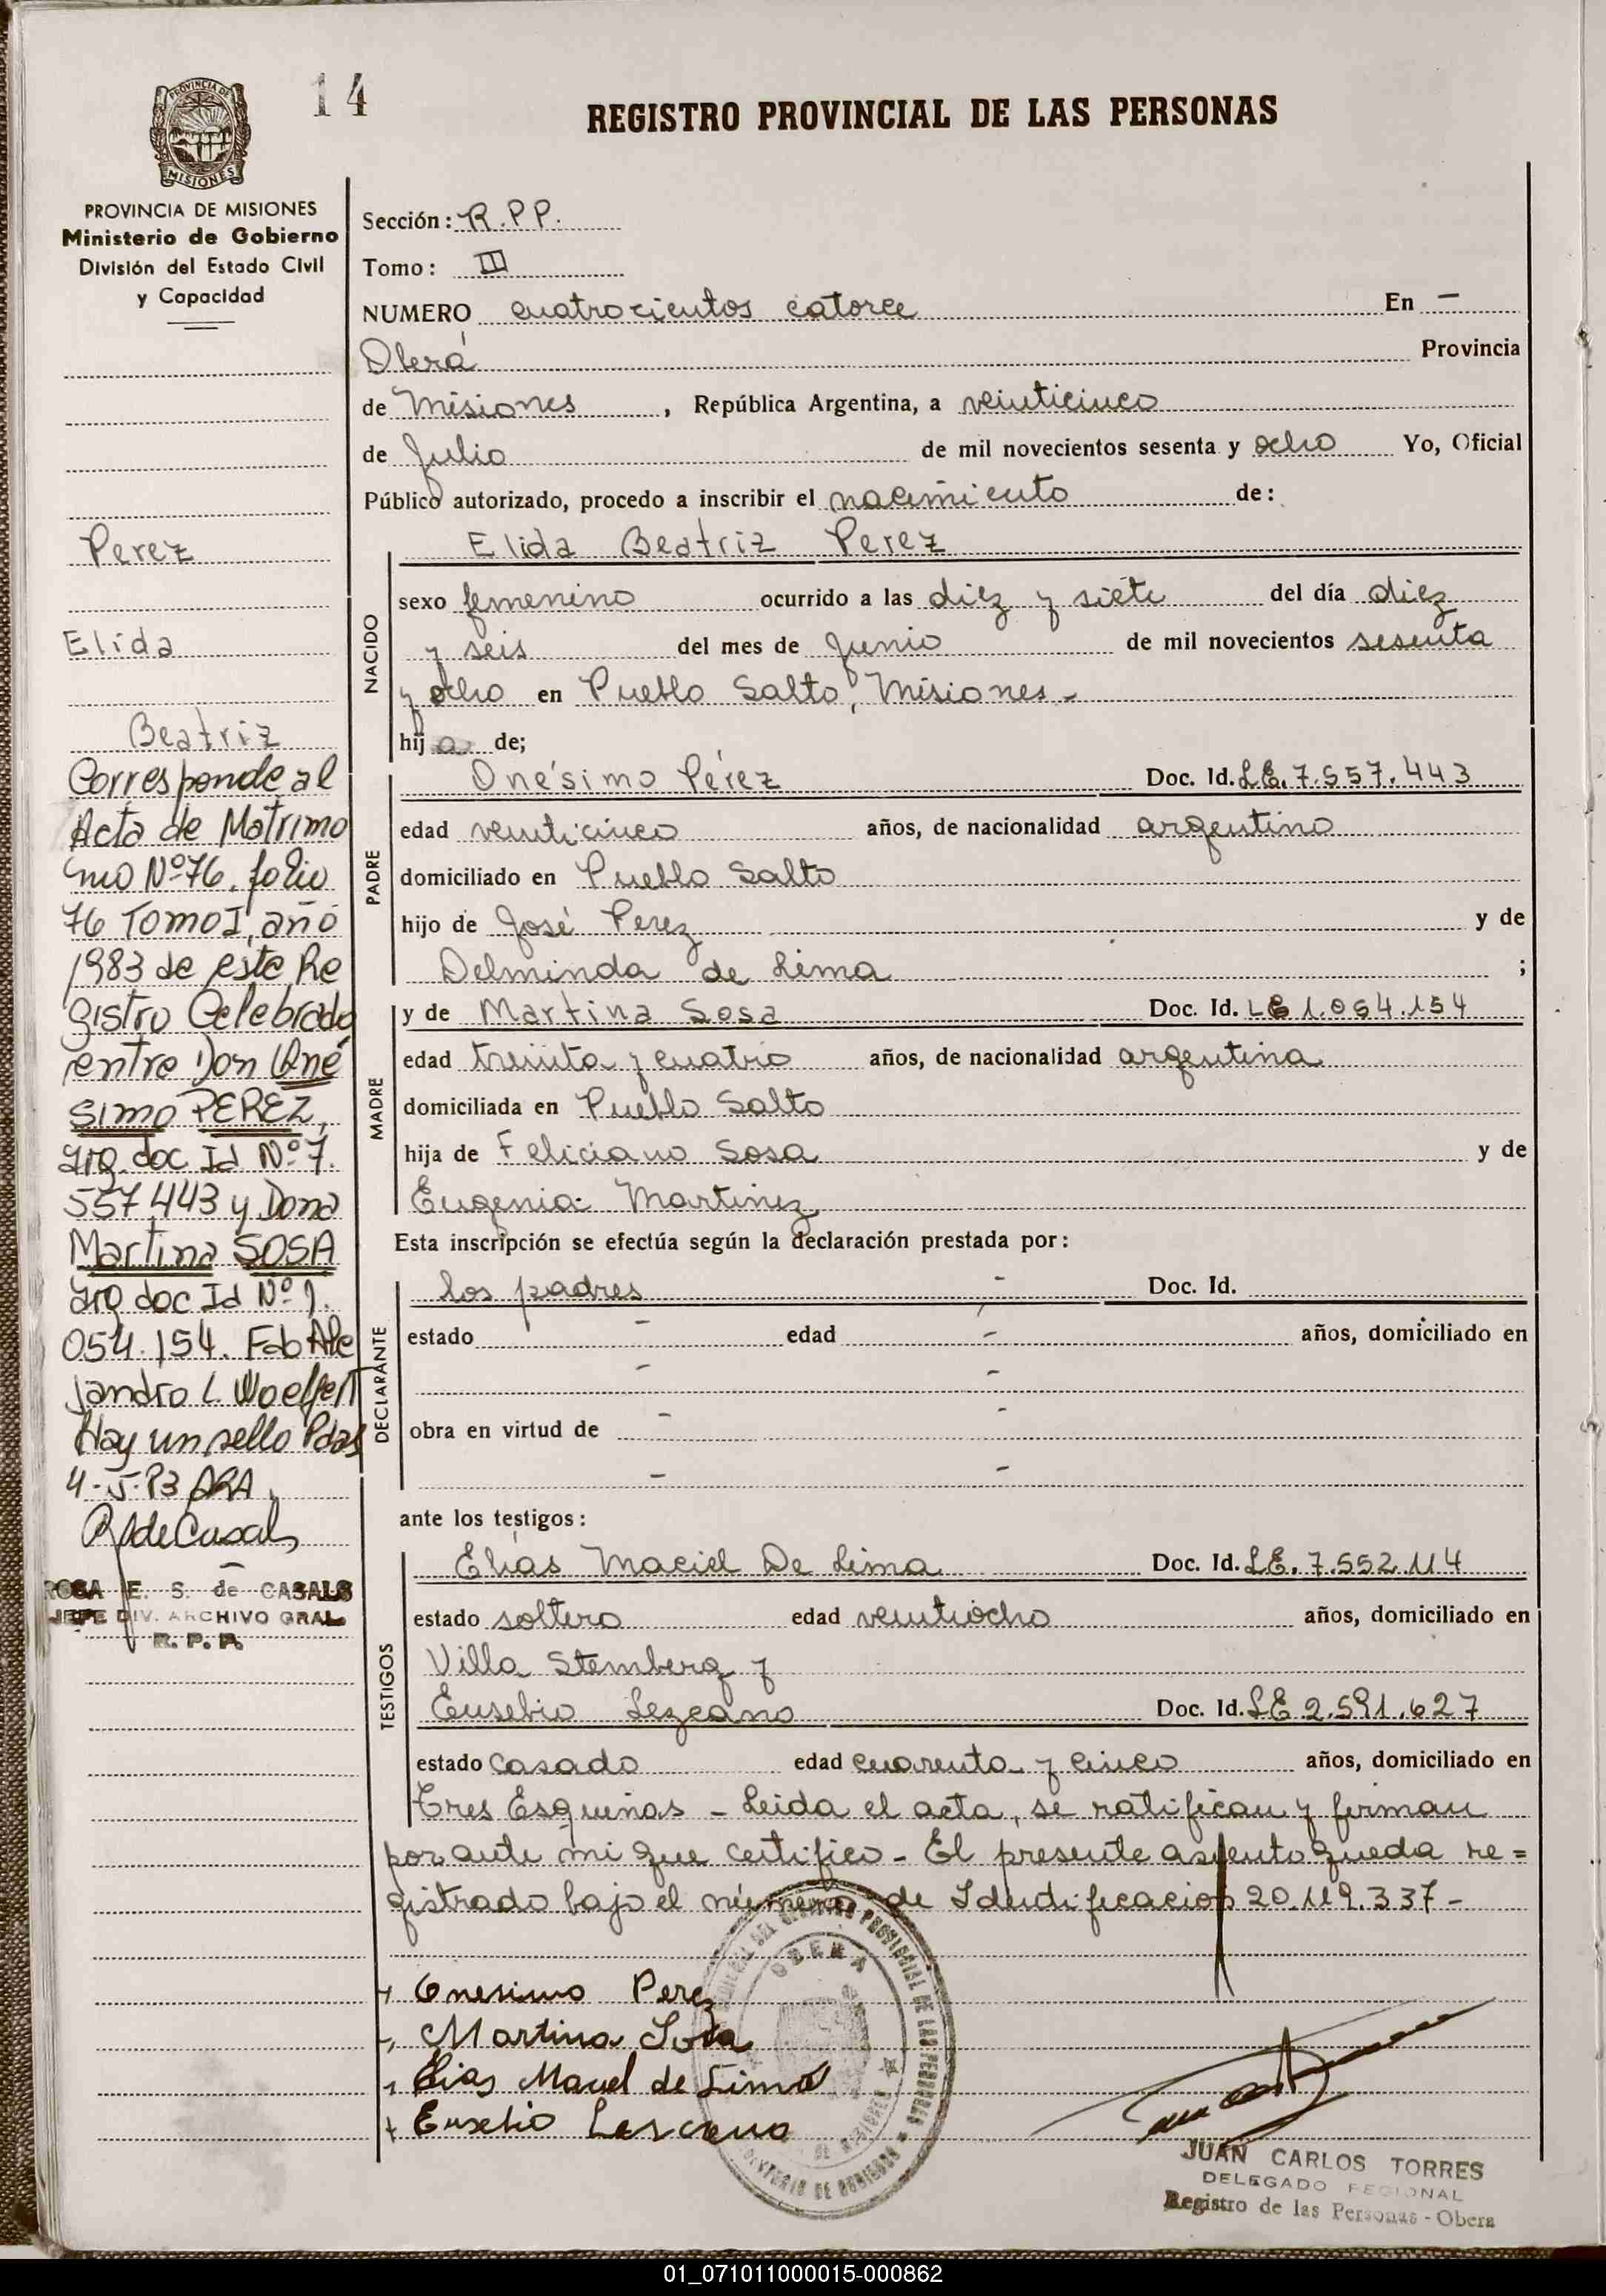 14
REGISTRO PROVINCIAL DE LAS PERSONAS
PROVINCIA DE
MISIONES
PROVINCIA DE MISIONES
Ministerio de Gobierno
División del Estado Civil
y Capacidad
Perez
Elida
Beatriz
Corresponde al
Acta de Matrimo
nio Nº 76, folio
76 Tomo I, año
1983 de este Re
gistro Celebrado
entre Don Oné
simo PEREZ,
arg. doc Id Nº 7.
557.443 y Doña
Martina SOSA
arg doc Id Nº 1.
054.154. Fdo Ale
jandro L. Woelfert
Hay un sello Pdas
4-5-83
R de Casals
ROSA E. S. de CASALS
JEFE DIV. ARCHIVO GRAL.
R. P. P.
Sección: R.P.P.
Tomo: III
NUMERO cuatrocientos catorce En -
Oberá Provincia
de Misiones, República Argentina, a veinticinco
de Julio de mil novecientos sesenta y ocho Yo, Oficial
Público autorizado, procedo a inscribir el nacimiento de:
NACIDO
Elida Beatriz Perez
sexo femenino ocurrido a las diez y siete del día diez
y seis del mes de Junio de mil novecientos sesenta
y ocho en Pueblo Salto, Misiones.-
hija de;
PADRE
Onésimo Pérez Doc. Id. L.E. 7.557.443
edad veinticinco años, de nacionalidad argentino
domiciliado en Pueblo Salto
hijo de José Perez y de
Delminda de Lima ;
MADRE
y de Martina Sosa Doc. Id. LE 1.054.154
edad treinta y cuatro años, de nacionalidad argentina
domiciliada en Pueblo Salto
hija de Feliciano Sosa y de
Eugenia Martinez
Esta inscripción se efectúa según la declaración prestada por:
DECLARANTE
los padres - Doc. Id.
estado - edad - años, domiciliado en
- -
obra en virtud de - -
- -
ante los testigos:
TESTIGOS
Elias Maciel De Lima Doc. Id. L.E. 7.552.114
estado soltero edad veintiocho años, domiciliado en
Villa Stemberg y
Eusebio Lezcano Doc. Id. LE 2.591.627
estado casado edad cuarenta y cinco años, domiciliado en
Tres Esquinas - Leida el acta, se ratifican y firman
por ante mi que certifico - El presente asiento queda re=
gistrado bajo el número de Identificacion 20.119.337 -
Onesimo Perez
Martina Sosa
Elias Maciel de Lima
Eusebio Lescano
OBERA
JUAN CARLOS TORRES
DELEGADO REGIONAL
Registro de las Personas - Obera
01_071011000015-000862